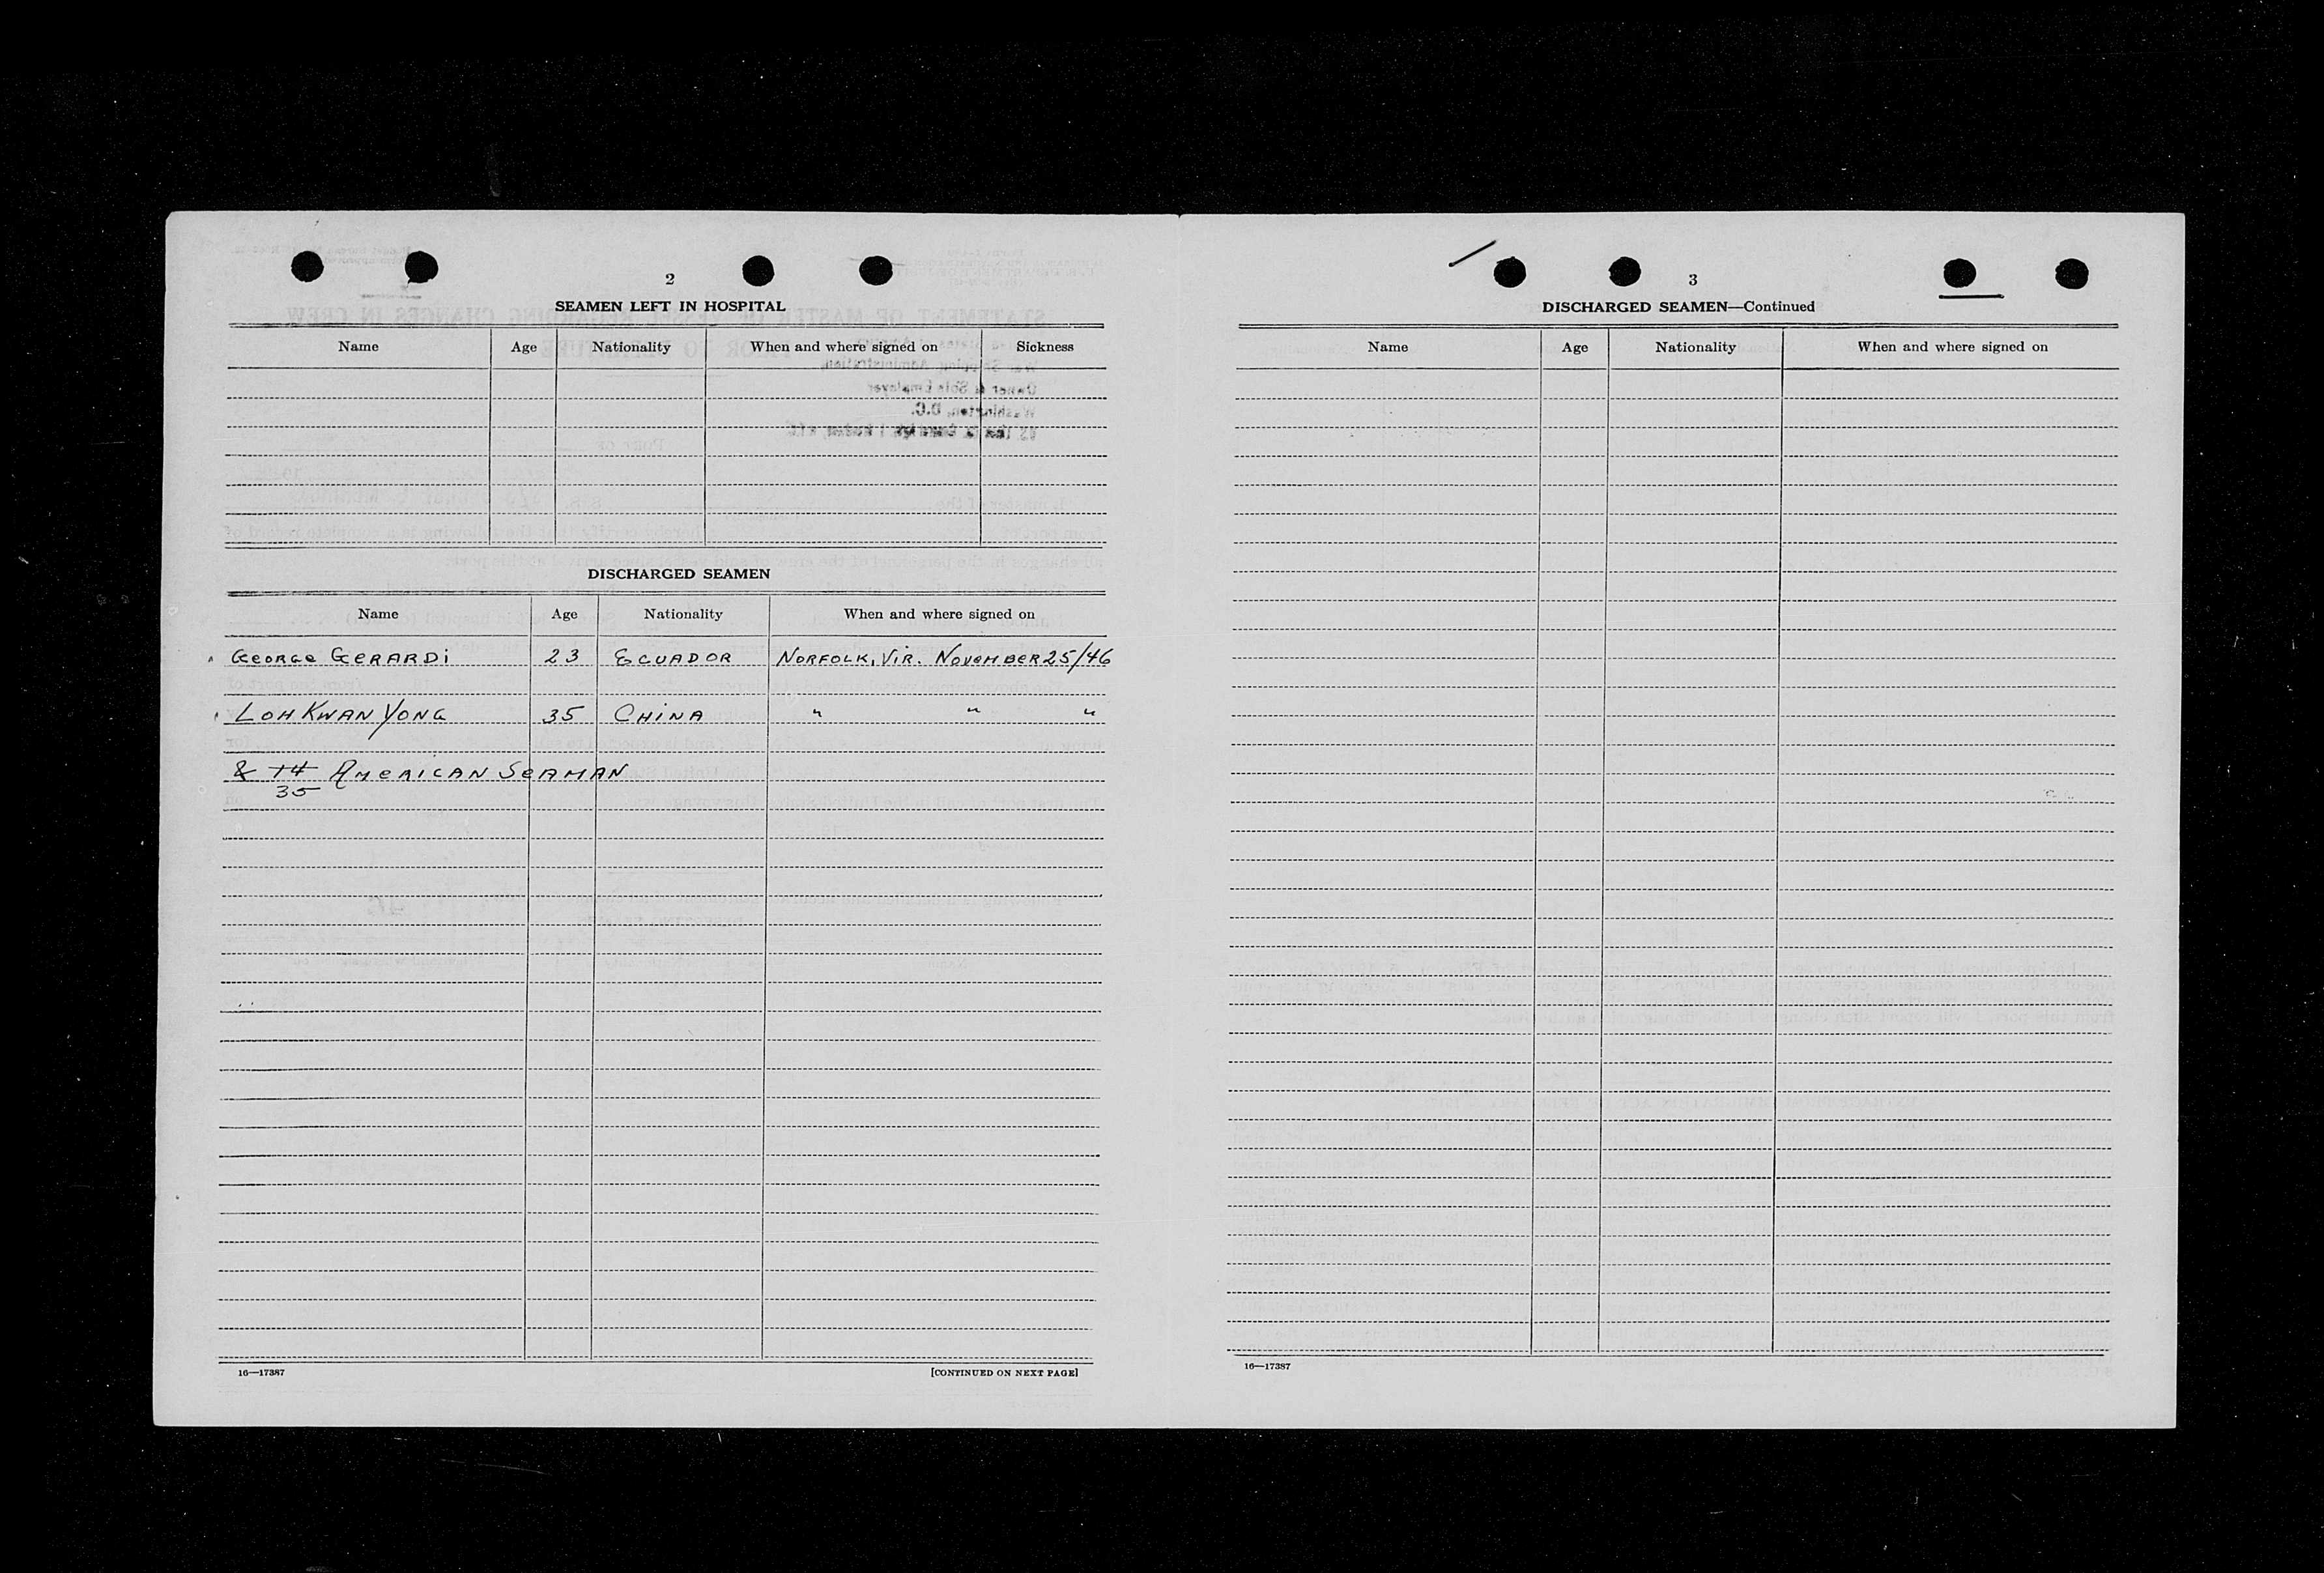 2
SEAMEN LEFT IN HOSPITAL
Name Age Nationality When and where signed on Sickness
DISCHARGED SEAMEN
Name Age Nationality When and where signed on
GEORGE GERARDI 23 ECUADOR NORFOLK, VIR. NOVEMBER 25/46
LOH KWAN YONG 35 CHINA " " "
& 14 AMERICAN SEAMAN
35
16—17387 [CONTINUED ON NEXT PAGE]
3
DISCHARGED SEAMEN—Continued
Name Age Nationality When and where signed on
16—17387